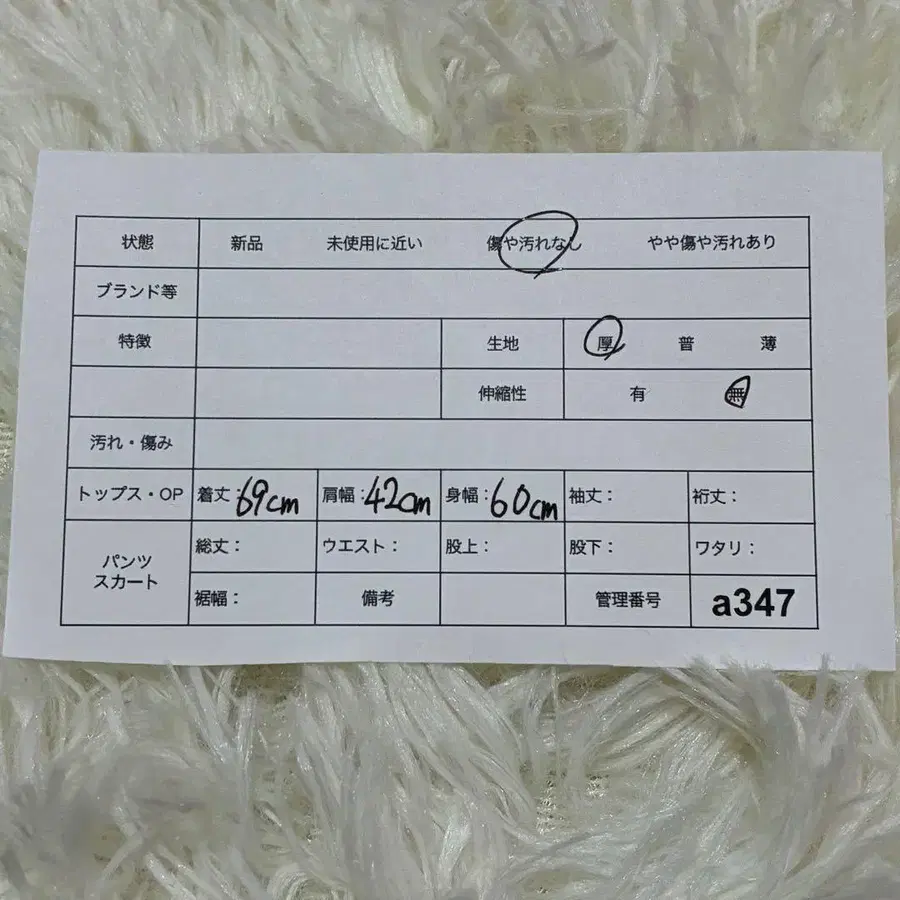 状態 新品 未使用に近い 傷や汚れなし やや傷や汚れあり
ブランド等
特徴 生地 厚 普 薄
伸縮性 有 無
汚れ・傷み
トップス・OP 着丈：69cm 肩幅：42cm 身幅：60cm 袖丈： 裄丈：
パンツ
スカート
総丈： ウエスト： 股上： 股下： ワタリ：
裾幅： 備考 管理番号 a347